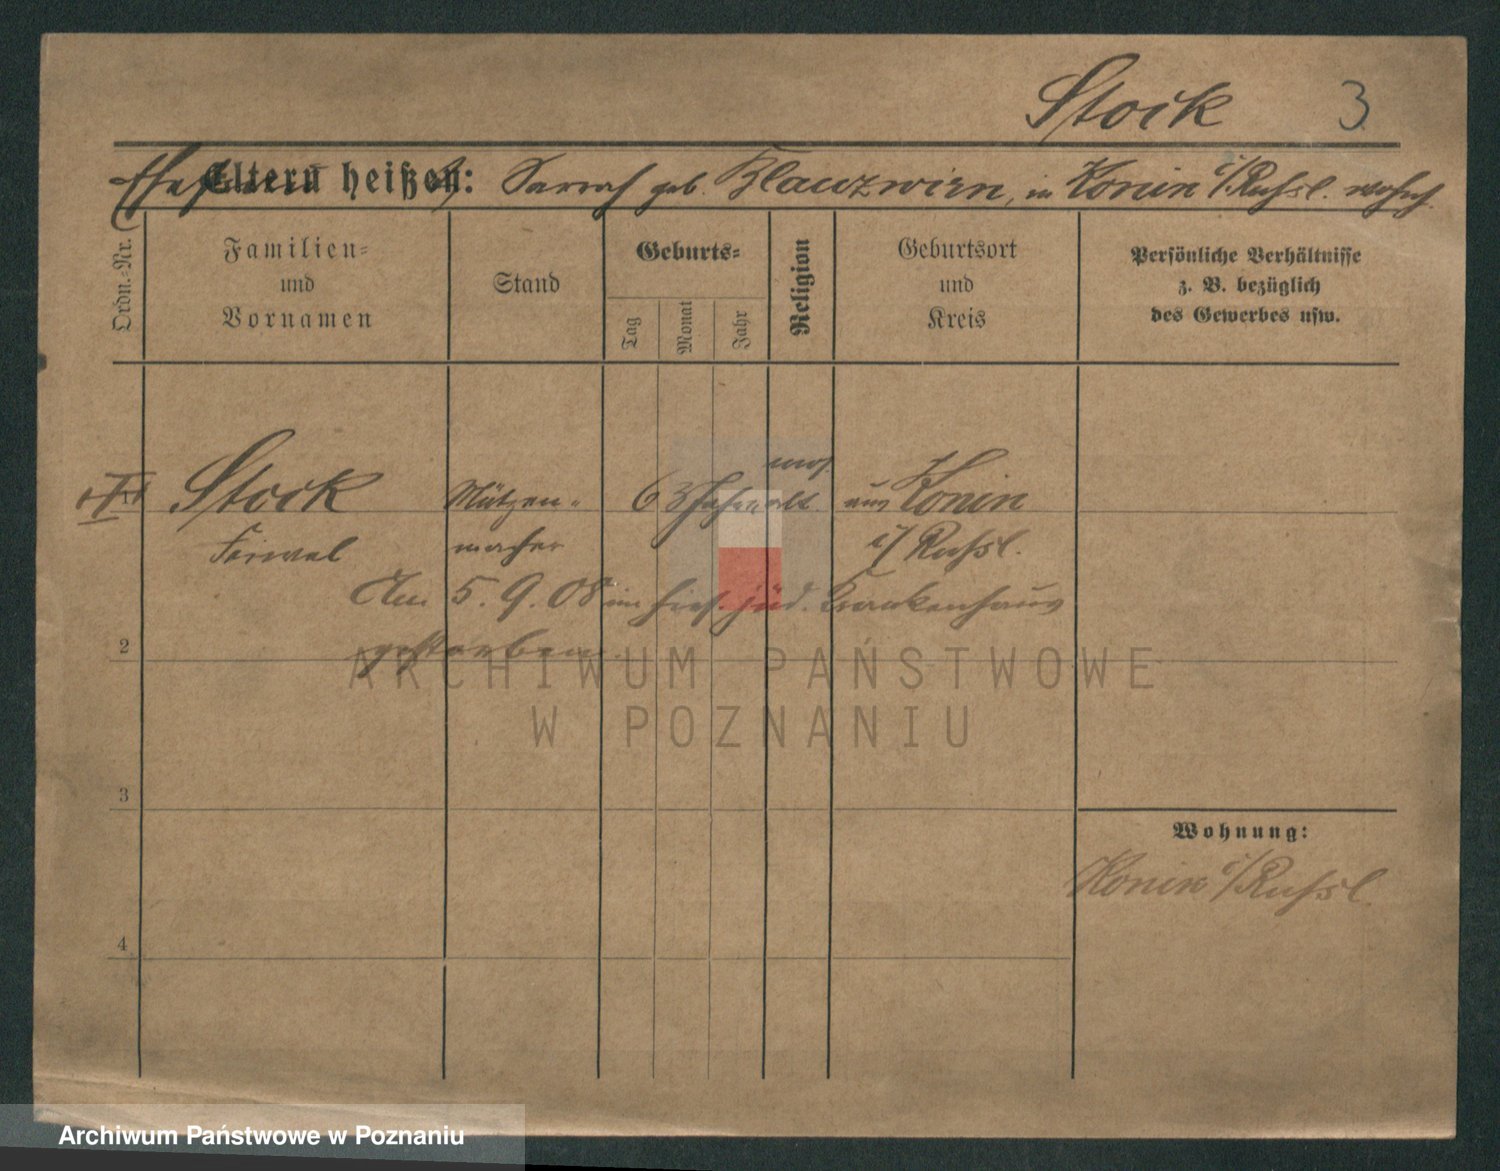 Stock 3
Ehefrau
Eltern heißen: Sarah geb. Blauzwirn, in Konin i/Rußl. wohnh.
Ordn.-Nr.
Familien-
und
Vornamen
Stand
Geburts-
Tag
Monat
Jahr
Religion
Geburtsort
und
Kreis
Persönliche Verhältnisse
z. B. bezüglich
des Gewerbes usw.
mos.
Stock Mützen- 63 Jahre alt. aus Konin
Feiwel macher i/ Rußl.
Am 5. 9. 08 im hies. jüd. Krankenhaus
gestorben.
2
ARCHIWUM PAŃSTWOWE
W POZNANIU
3
Wohnung:
Konin i/Rußl.
4
Archiwum Państwowe w Poznaniu